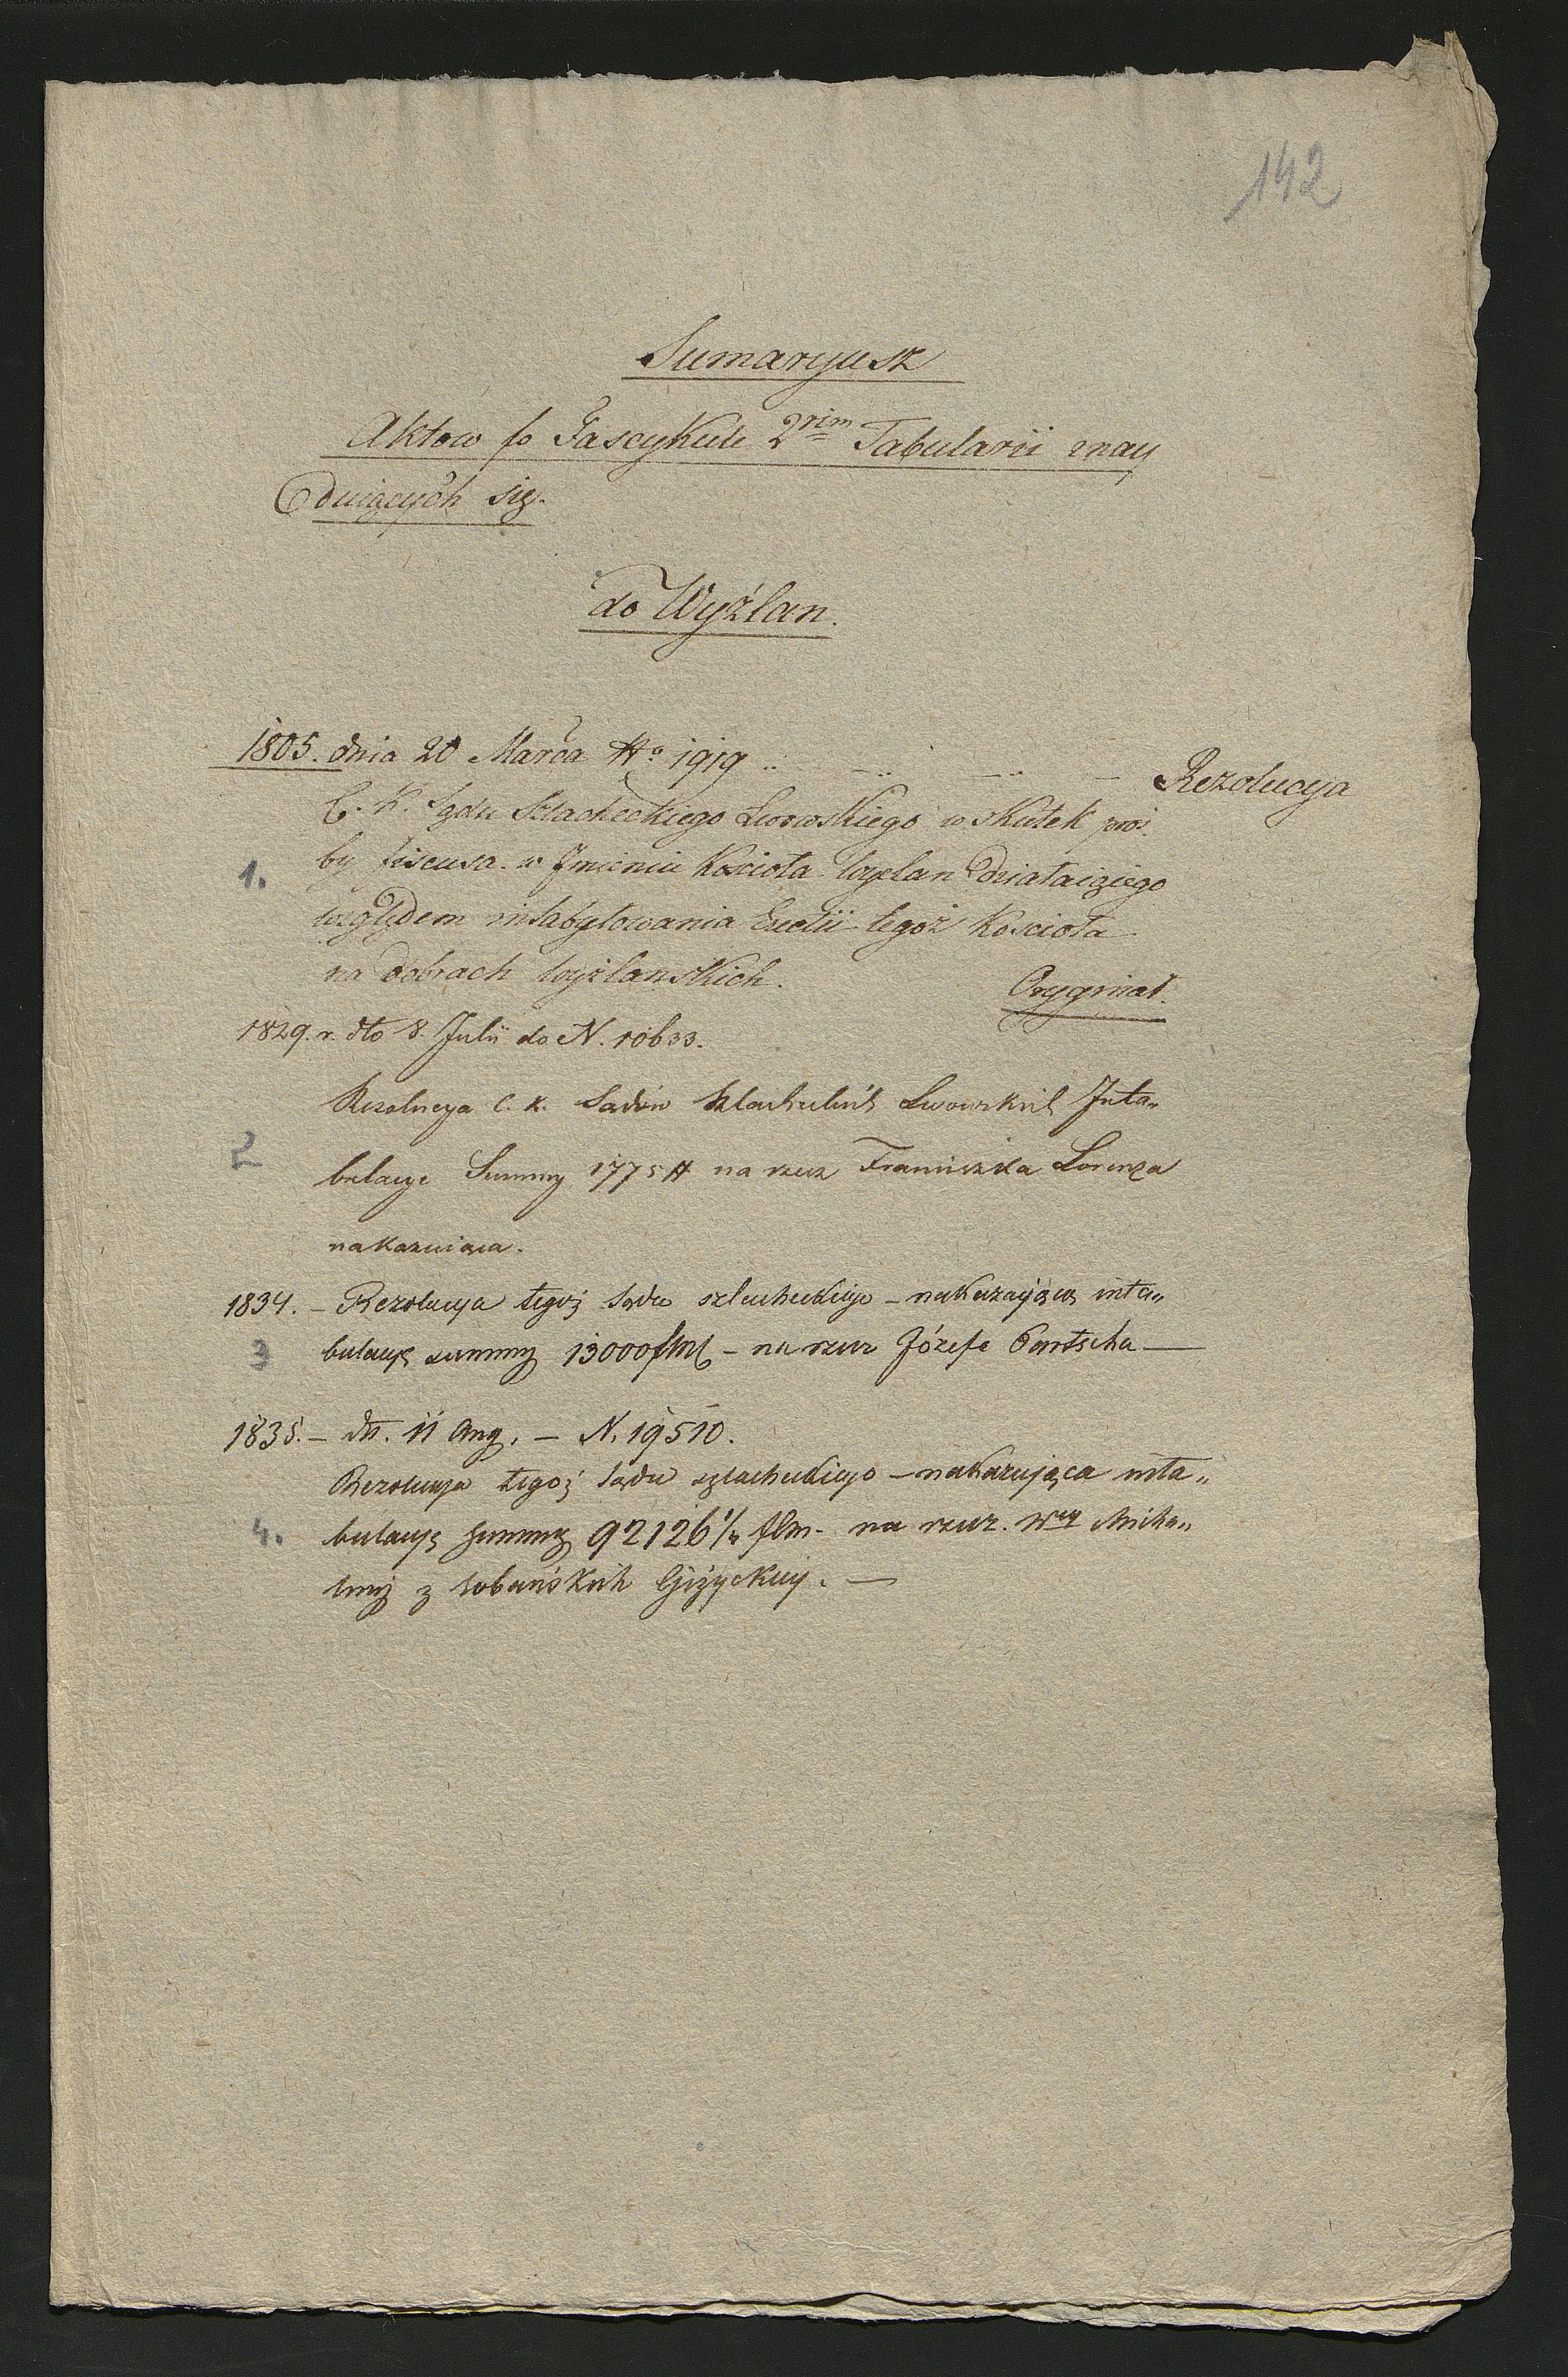 142
Sumaryusz
Aktow w Fascykule 2rim Tabularii znay
duiących się.
do Wyżlan.
1805. dnia 20 Marca No 1919 .. - .. - .. - Rezolucya
C. K. Sądu Szlacheckiego Lwowskiego w skutek proś
1. by fiscusa w Jmieniu Kościoła Wyżlan Działaiącego
względem intabulowania Erectii tegoż Kościoła
na Dobrach Wyżlanskich. Orygniał.
1829. r. dto 8. Julii do N. 10633.
Rezolucya C. K. Sadów Szlacheckich Lwowskich Inta„
2 bulacye Summy 1775 # na rzecz Franciszka Lorenza
nakazuiąca.
1834. – Rezolucya tegoż Sądu szlacheckiego – nakazająca inta„
3 bulacyę summy 13000 – na rzecz Józefa Partscha —
1835. – dto. 11 Aug. – N. 19510.
Rezolucya tegoż Sądu szlacheckiego – nakazująca inta„
4. bulacyę summy 92126 na rzecz. Wey Miha„
liny z Łobeńskich Giżyckiey. —